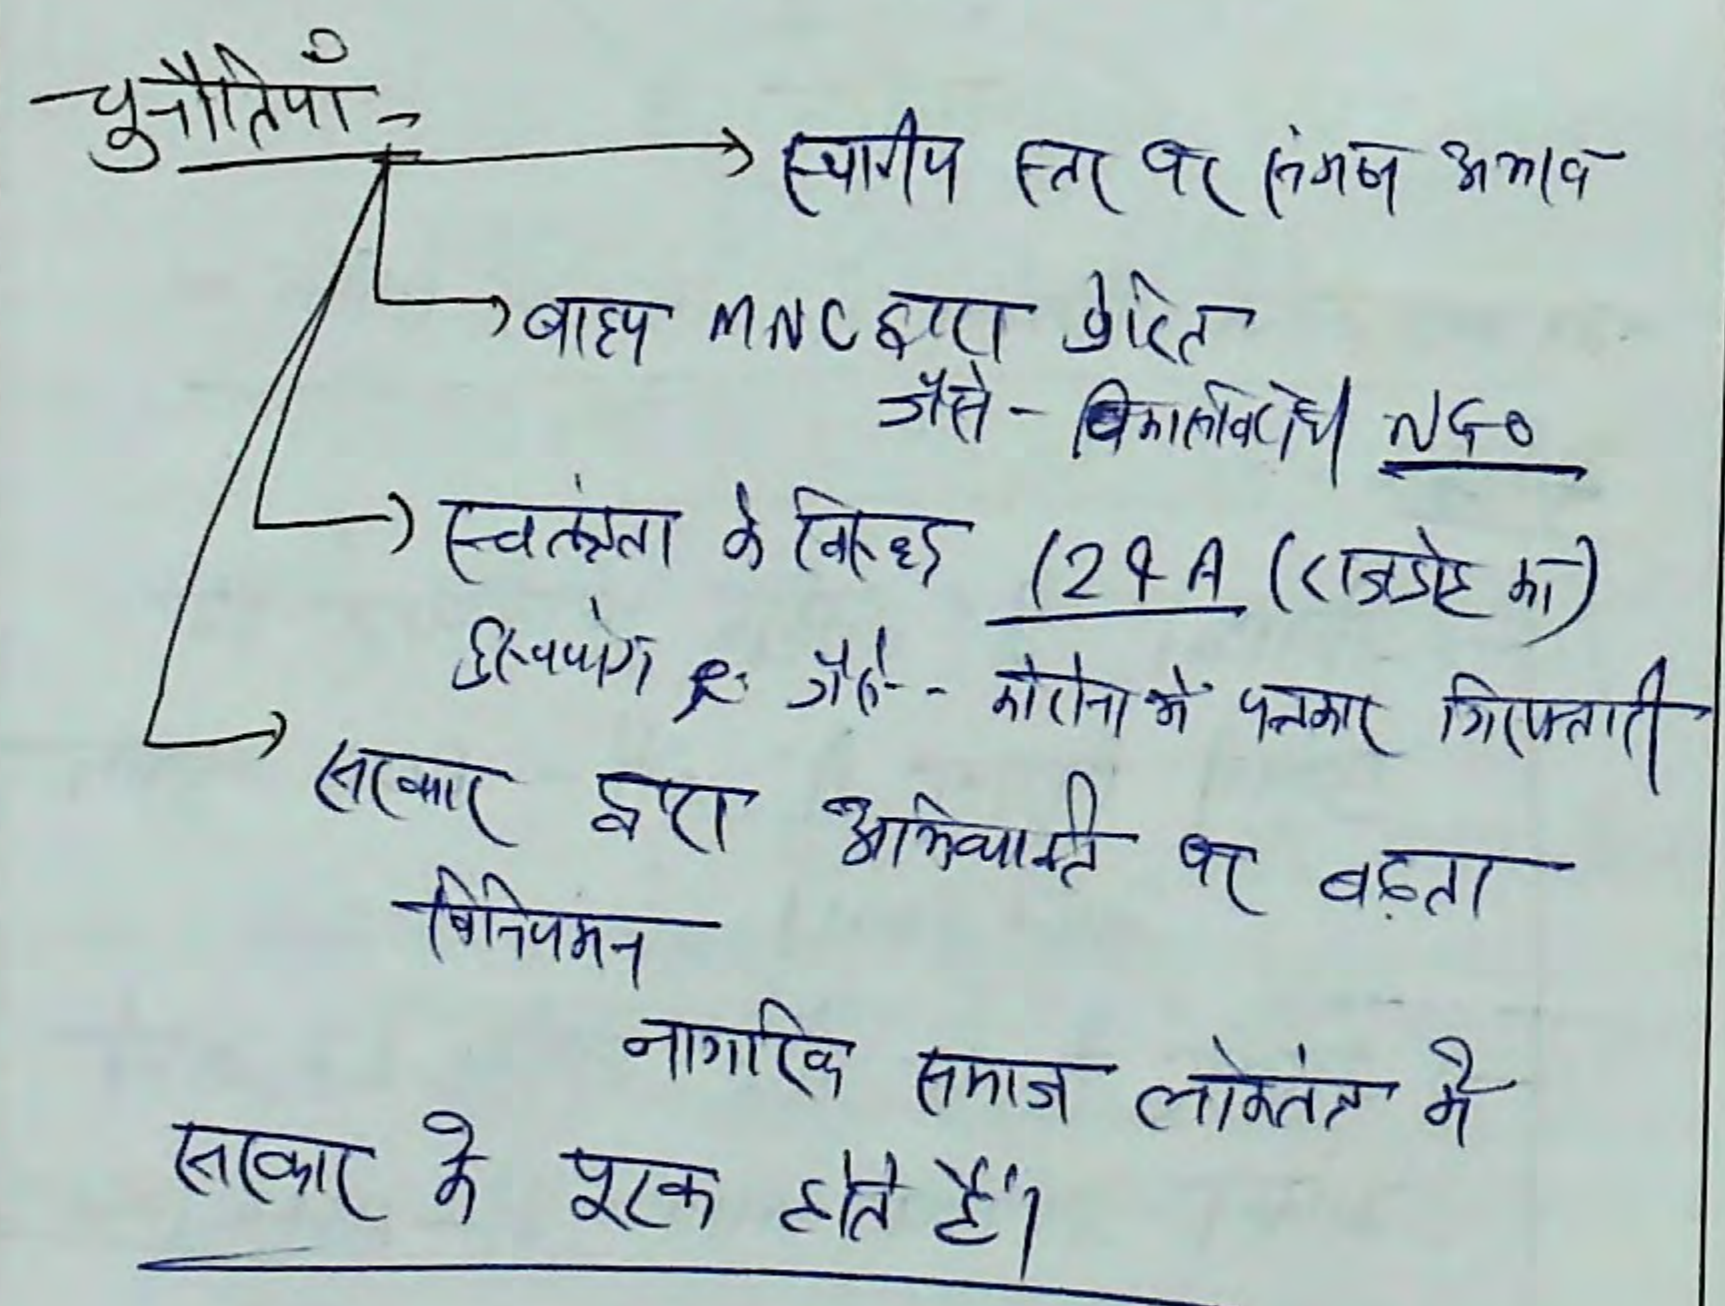 चुनौतियाँ -
स्थानीय स्तर पर संगठन अभाव
बाह्य MNC द्वारा प्रेरित
जैसे - विकासविरोधी NGO
स्वतंत्रता के विरुद्ध 124A (राजद्रोह का)
दुरुपयोग जैसे - कोरोना में पत्रकार गिरफ्तारी
सरकार द्वारा अभिव्यक्ति पर बढ़ता
विनियमन
नागरिक समाज लोकतंत्र में
सरकार के पूरक होते हैं।